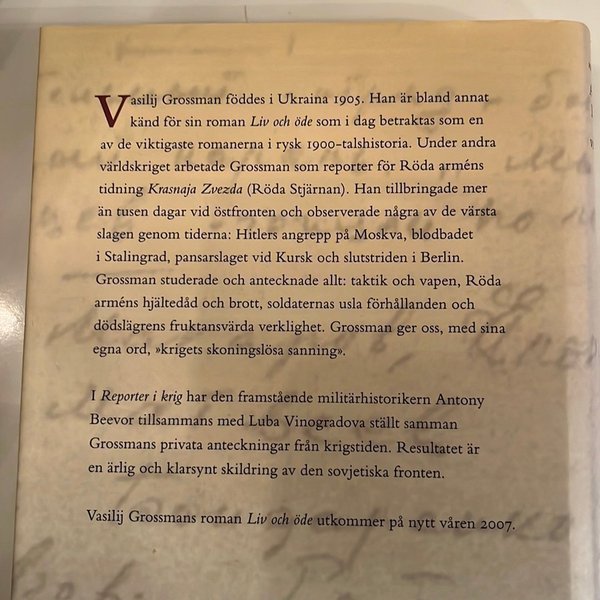 Vasilij Grossman föddes i Ukraina 1905. Han är bland annat
känd för sin roman Liv och öde som i dag betraktas som en
av de viktigaste romanerna i rysk 1900-talshistoria. Under andra
världskriget arbetade Grossman som reporter för Röda arméns
tidning Krasnaja Zvezda (Röda Stjärnan). Han tillbringade mer
än tusen dagar vid östfronten och observerade några av de värsta
slagen genom tiderna: Hitlers angrepp på Moskva, blodbadet
i Stalingrad, pansarslaget vid Kursk och slutstriden i Berlin.
Grossman studerade och antecknade allt: taktik och vapen, Röda
arméns hjältedåd och brott, soldaternas usla förhållanden och
dödslägrens fruktansvärda verklighet. Grossman ger oss, med sina
egna ord, »krigets skoningslösa sanning».
I Reporter i krig har den framstående militärhistorikern Antony
Beevor tillsammans med Luba Vinogradova ställt samman
Grossmans privata anteckningar från krigstiden. Resultatet är
en ärlig och klarsynt skildring av den sovjetiska fronten.
Vasilij Grossmans roman Liv och öde utkommer på nytt våren 2007.